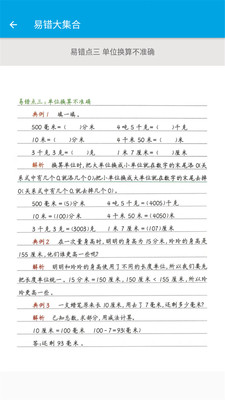 易错大集合
易错点三 单位换算不准确
易错点三:单位换算不准确
典例1 填一填。
500 毫米=( )分米 4 吨 5 千克=( )千克
10 米=( )分米 4 千米 50 米=( )米
3 千克 3 克=( )克 1 米 7 厘米=( )厘米
解析 换算单位时,把大单位换成小单位就在数字的末尾添 0(关
系式中有几个 0,就添几个 0);把小单位换成大单位就在数字的末尾去掉
0(关系式中有几个 0,就去掉几个 0)。
500 毫米=(5)分米 4 吨 5 千克=(4005)千克
10 米=(100)分米 4 千米 50 米=(4050)米
3 千克 3 克=(3003)克 1 米 7 厘米=(107)厘米
典例2 在一次量身高时,明明的身高为 15 分米,玲玲的身高是
155 厘米,他们谁更高一些呢?
解析 明明和玲玲的身高使用了不同的长度单位,所以我们要先
把长度单位统一。15 分米=150 厘米,150 厘米 < 155 厘米,所以玲
玲更高一些。
典例3 一支蜡笔原来长 10 厘米,用去了 7 毫米,还剩多少毫米?
解析 已知总数,求部分,用减法计算。
10 厘米=100 毫米 100-7=93(毫米)
答:还剩 93 毫米。